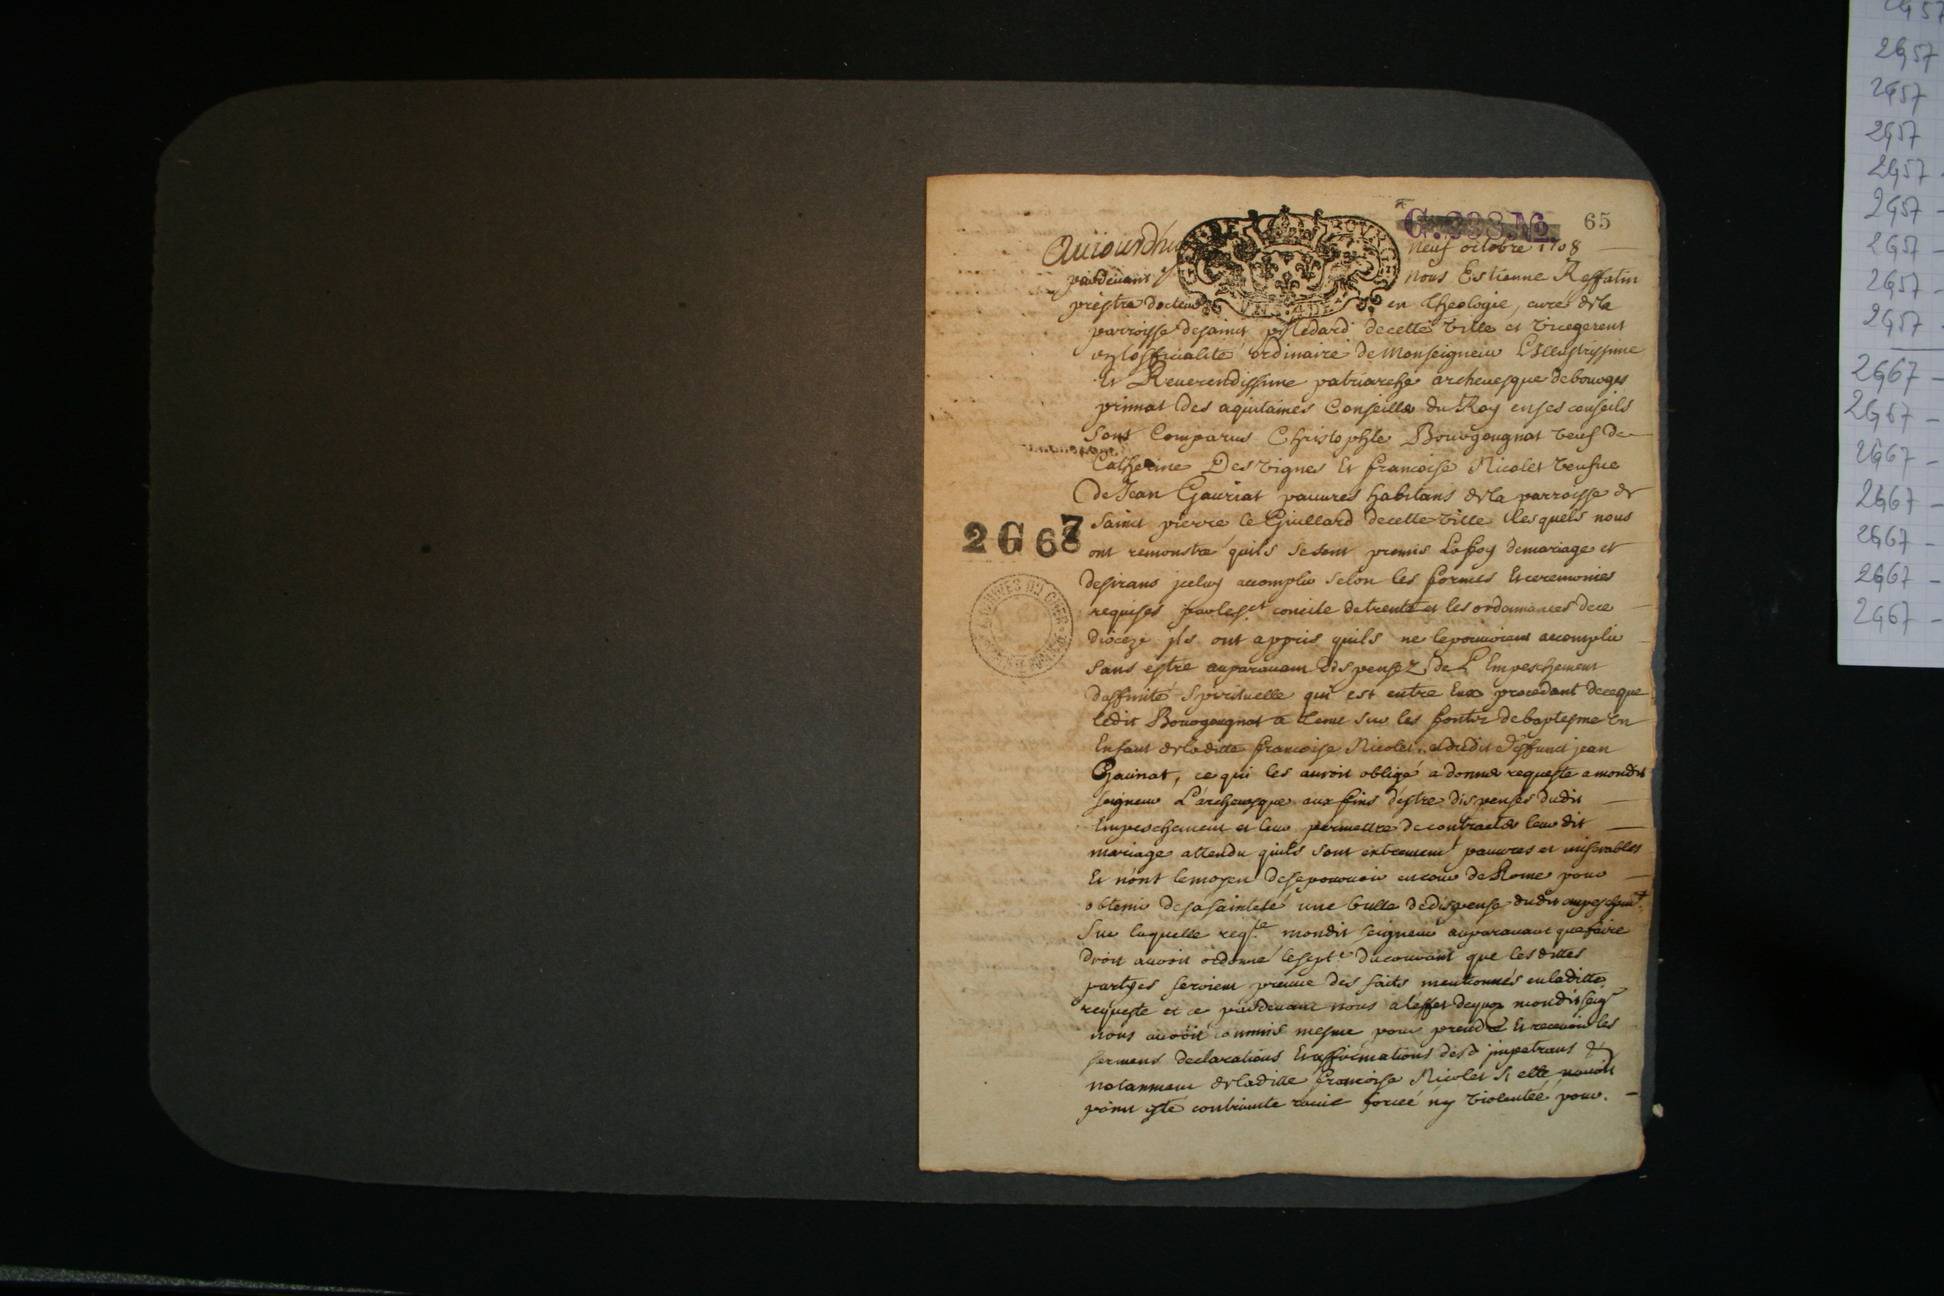 G. 398. No. 65
Aujourdhuy neuf octobre 1708
pardevant nous Estienne Reffatin
prestre docteur en theologie, curé de la
parroisse de sainct Medard de cette ville et vicegerent
en lofficialité ordinaire de Monseigneur L'Illustrissime
Et Reverendissime patriarche archevesque de bourges
primat des aquitaines Conseiller du Roy en ses conseils
Sont Comparus Christophle Bourgougnat veuf de
Catherine Desvignes Et francoise Nicolet veufve
de Jean Gauriat pauvres habitans de la parroisse de
2 G 67 sainct pierre le Guillard de cette ville lesquels nous
ont remonstré quils se sont promis La foy de mariage et
desirans jceluy accomplir selon les formes Et ceremonies
requises par le st concile de trente et les ordonnances de ce
dioceze jls ont appris quils ne le pouvoient accomplir
sans estre auparavant dispensez de L'Empeschement
daffinité spirituelle qui est entre Eux procedant de ce que
ledit Bourgougnat a tenu sur les fonts de baptesme Un
Enfant de laditte francoise Nicolet et dudit deffunct jean
Gauriat, ce qui les auroit obligé a donner requeste a mondit
seigneur L'archevesque aux fins d'estre dispensés dudit
Empeschement et leur permettre de contracter leur dit
mariage attendu quils sont extremement pauvres et miserables
Et n'ont le moyen de se pourvoir en cour de Rome pour
obtenir de sa sainteté une bulle de dispense dudit empeschemt
Sur laquelle reqte mondit seigneur auparavant que faire
droit auroit ordonné le sept du courant que lesdittes
partyes feroient preuve des faits mentionnés en laditte
requeste et ce pardevant nous a l'effet de quoy mondit seigr
nous auroit commis mesme pour prendre Et recevoir les
sermens declarations Et affirmations desd jmpetrans Et
notamment de laditte francoise Nicolet si elle n'avoit
point esté contrainte ravie forcée ny violentée pour
ARCHIVES DU CHER
2G57
2G57
2G57
2G57
2G57 -
2G57 -
2G57 -
2G57 -
2G57 -
2G67 -
2G67 -
2G67 -
2G67 -
2G67 -
2G67 -
2G67 -